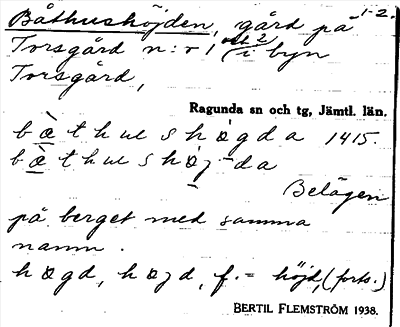 Båthushöjden, gård på 1-2.
Torsgård n:r 1 och 2 i byn
Torsgård,
Ragunda sn och tg, Jämtl. län.
b æ t h u s h ø g d a 1415.
b æ t h u s h ø j - d a
Belägen
på berget med samma
namn.
h ø g d, h ø j d, f. = höjd, (forts.)
BERTIL FLEMSTRÖM 1938.